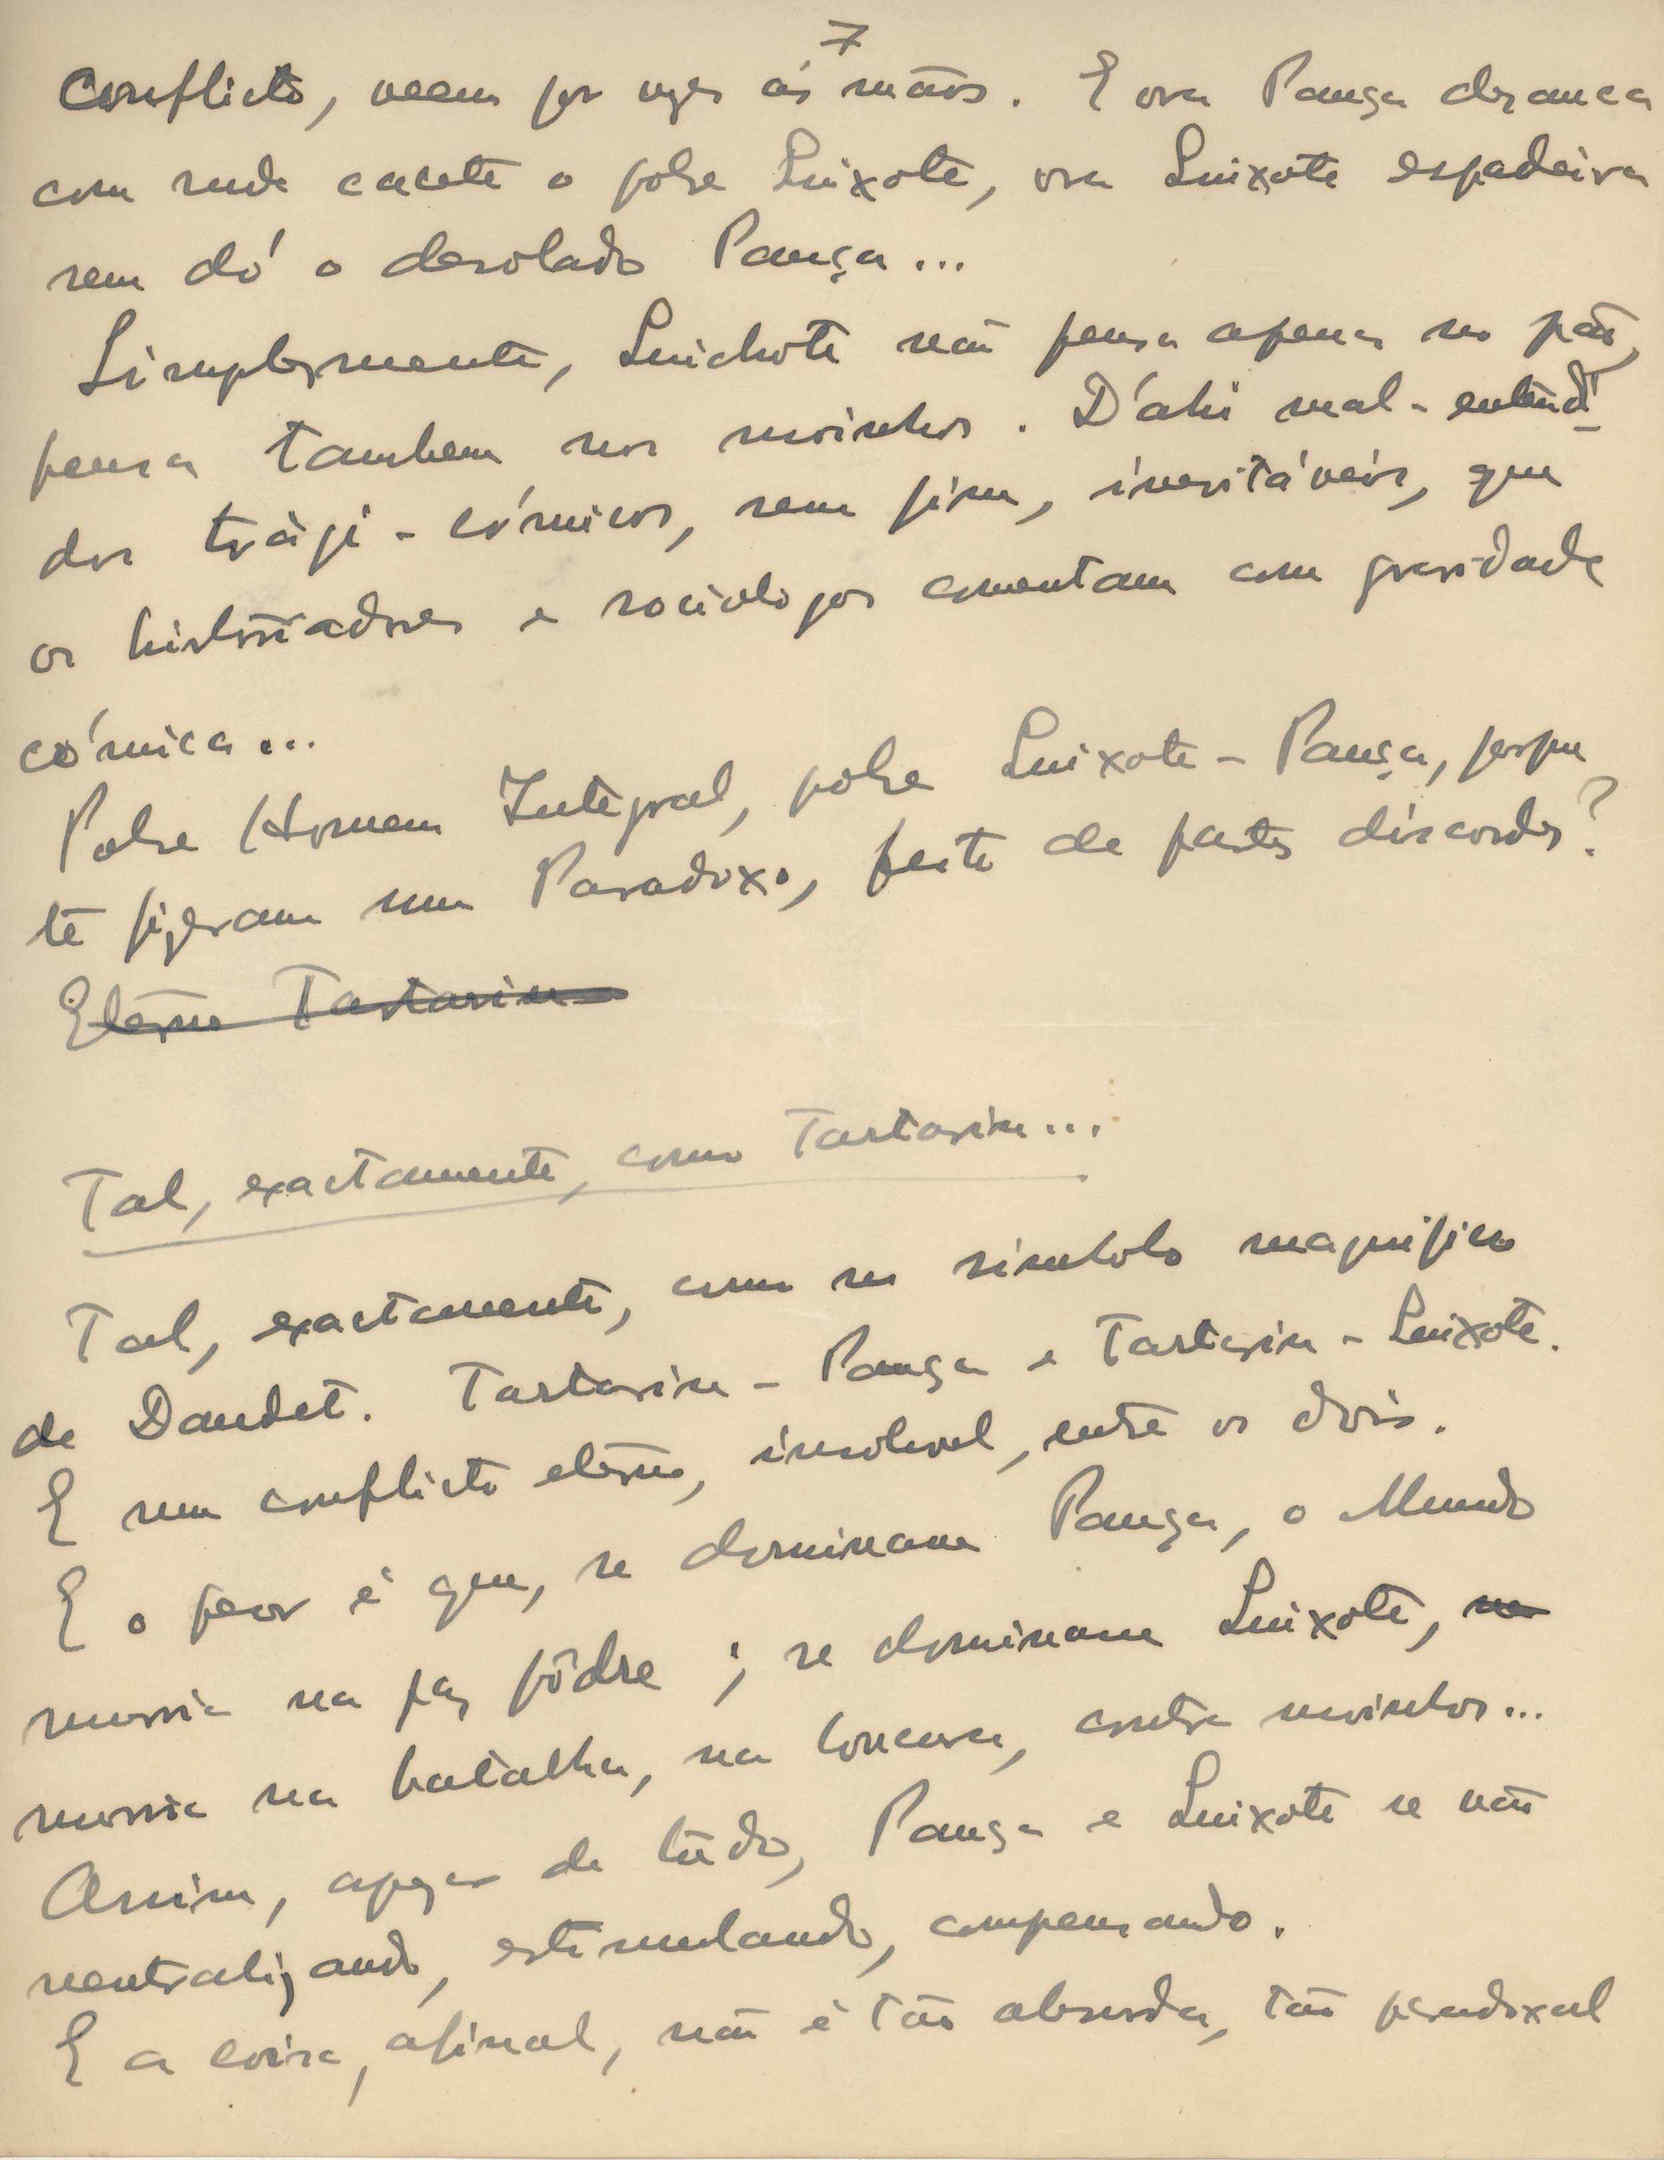 7
conflicto, veem por vezes ás mãos. E ora Pança desanca
com rude cacete o pobre Quixote, ora Quixote espadeira
sem dó o desolado Pança...
Simplesmente, Quichote não pensa apenas no pão,
pensa tambem nos moinhos. D'ahi mal-entendi-
dos trági-cómicos, sem fim, inevitáveis, que
os historiadores e sociologos comentam com gravidade
cómica...
Pobre Homem Integral, pobre Quixote-Pança, porque
te fizeram um Paradoxo, feito de partes discordes?
Eterno Tartarin
Tal, exactamente, como Tartarin...
Tal, exactamente, como no simbolo magnifico
de Daudet. Tartarin-Pança e Tartarin-Quixote.
E um conflicto eterno, insoluvel, entre os dois.
E o peor é que, se dominam Pança, o Mundo
morria na paz pôdre; se dominam Quixote, na
morria na batalha, na loucura, contra moinhos...
Assim, apezar de tudo, Pança e Quixote se vão
neutralizando, estimulando, compensando.
E a coisa, afinal, não é tão absurda, tão paradoxal